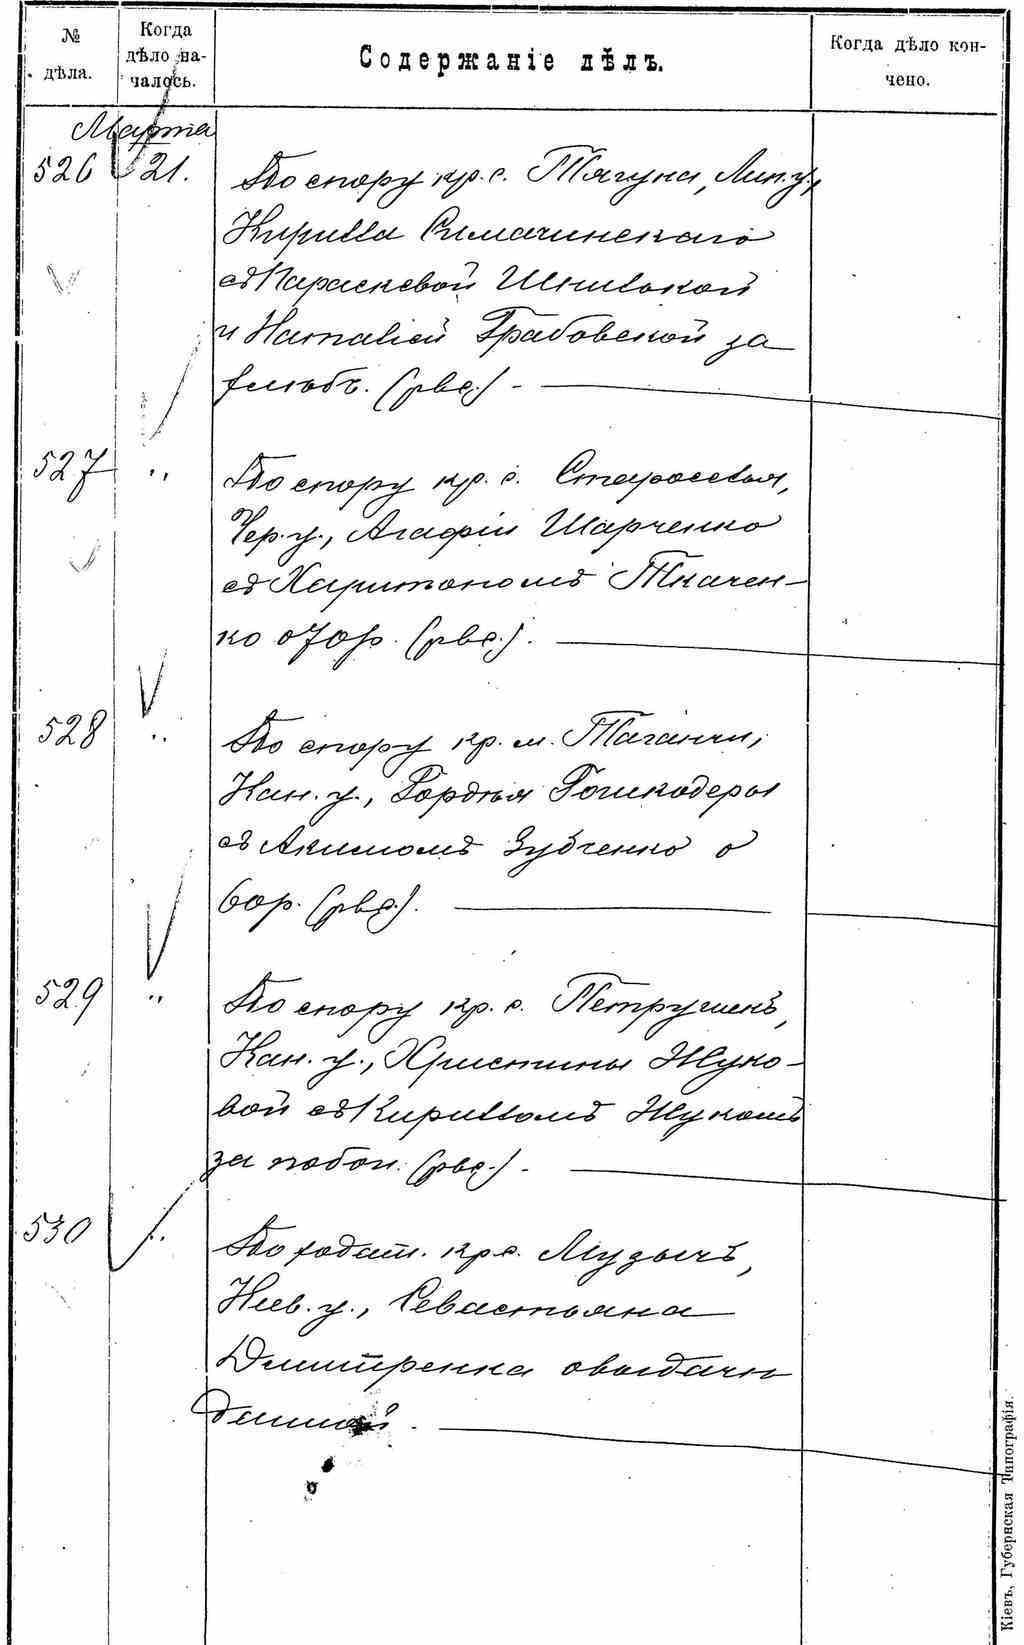 № дѣла.
Когда дѣло началось.
Содержаніе дѣлъ.
Когда дѣло кончено.
Марта
526 21. По спору кр. с. Тягуна, Лип. у.,
Кирилла Симачинскаго
съ Параскевой
и Наталіей Грабовской за
(рвс.) -
527 " По спору кр. с. Староселья,
Чер. у., Агафіи Шарченко
съ Харитономъ Ткачен-
ко о 70 р. (рвс.).
528 " По спору кр. м. Таганчи,
Кан. у., Гордѣя Гошкодеры
съ Акимомъ Зубченко о
60 р. (рвс.).
529 " По спору кр. с. Петрушекъ,
Кан. у., Христины Жуко-
вой съ Кирилломъ Жукомъ
за побои. (рвс.) -
530 " По ходат. кр. с. Музычъ,
Кіев. у., Севастьяна
Дмитренка о выдачи
данной.
Кіевъ, Губернская Типографія.